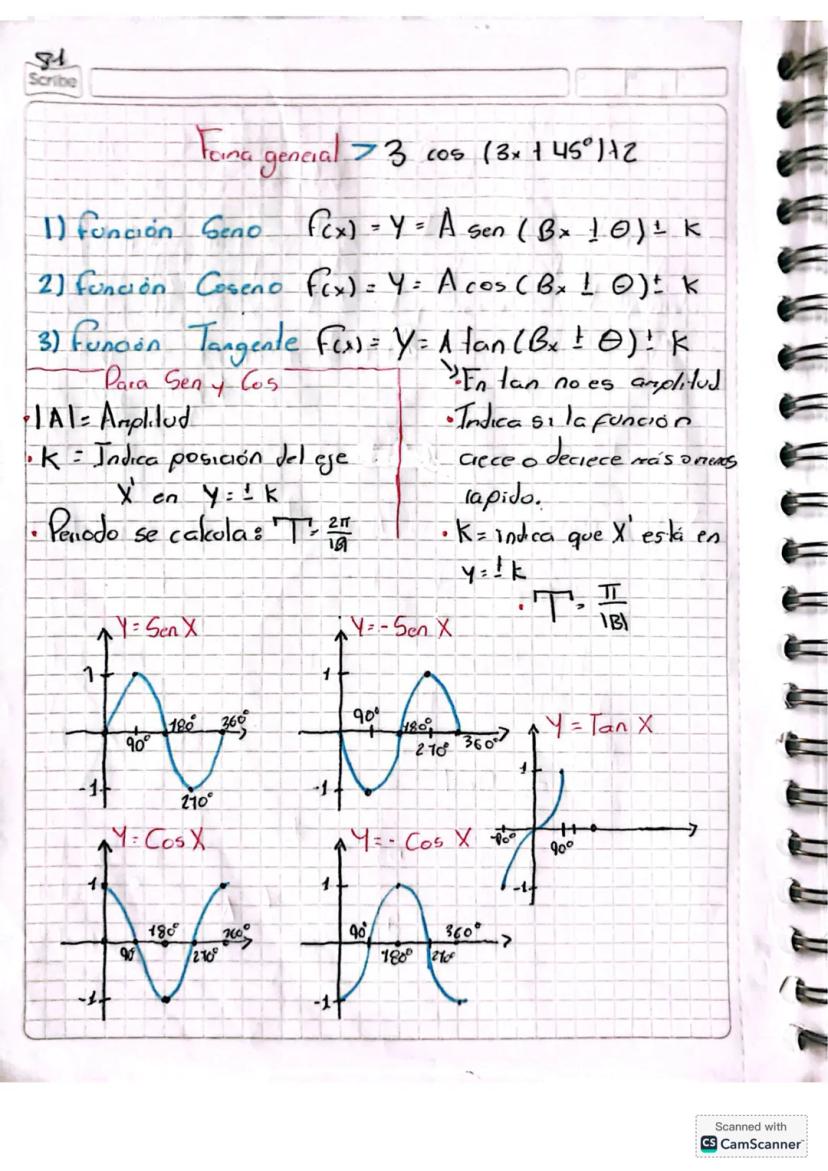 81
Scribe
Forma general > 3 cos (3x + 45°)+2
1) Función Seno f(x) = Y = A sen (Bx ± θ) ± K
2) Función Coseno f(x) = Y = A cos (Bx ± θ) ± K
3) Función Tangente f(x) = Y = A tan (Bx ± θ) ± K
Para Sen y Cos
• |A| = Amplitud
• K = Indica posición del eje
X' en Y = ± K
• Periodo se calcula: T = 2π/|B|
• En tan no es amplitud
• Indica si la función
crece o decrece más o menos
rapido.
• K = indica que X' está en
y = ± K
• T = π/|B|
Y = Sen X
1
90°
180°
270°
360°
-1
Y = - Sen X
1
90°
180°
270°
360°
-1
Y = Tan X
1
-90°
90°
-1
Y = Cos X
1
90°
180°
270°
360°
-1
Y = - Cos X
1
90°
180°
270°
360°
-1
Scanned with
CS CamScanner